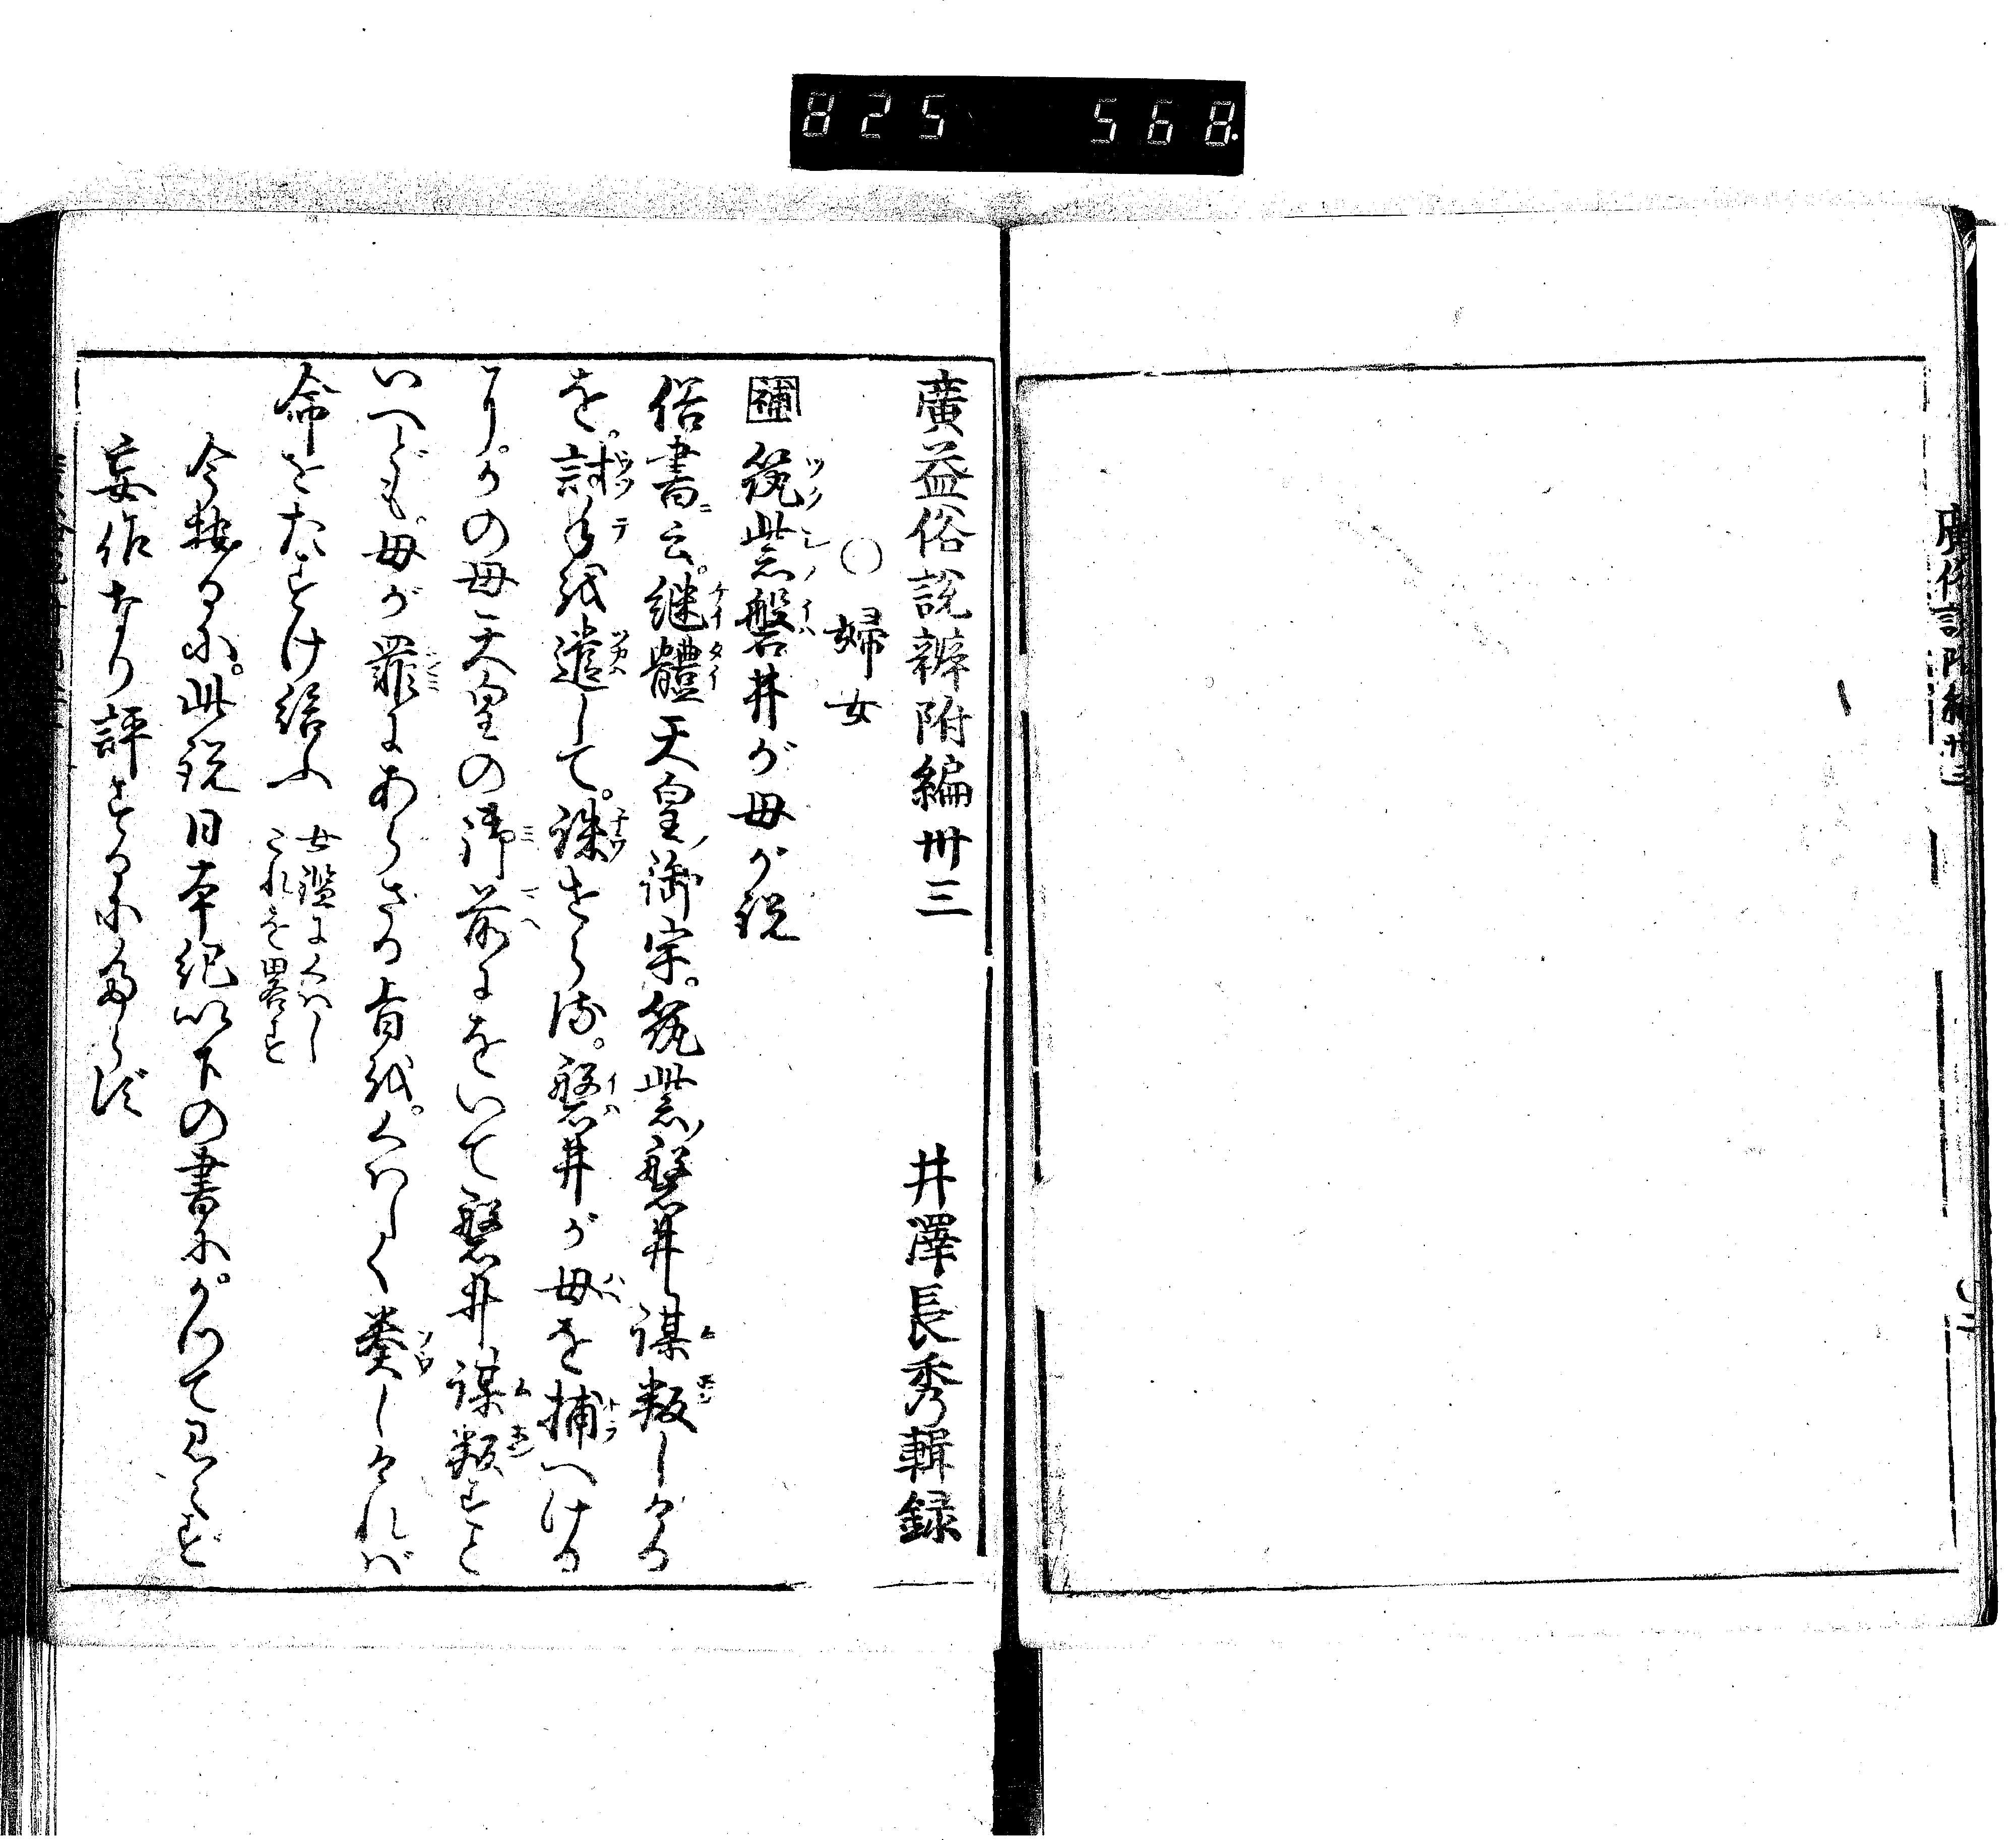 825 568
廣益俗說辨附編卅三 井澤長秀輯録
○婦女
補 筑紫磐井が母が説
俗書云。継體天皇ノ御宇。筑紫ノ磐井謀叛しける
を。討手を遣して。誅せらる。磐井が母を捕へける
に。かの母天皇の御前にをいて磐井謀叛すと
いへども。母が罪にあらざる旨を。くはしく奏しければ
命をたすけ給ふ 女鑑にくはし
これを畧す
今按るに。此説日本紀以下の書に。かつて見へず
妄作なり評するにたらず